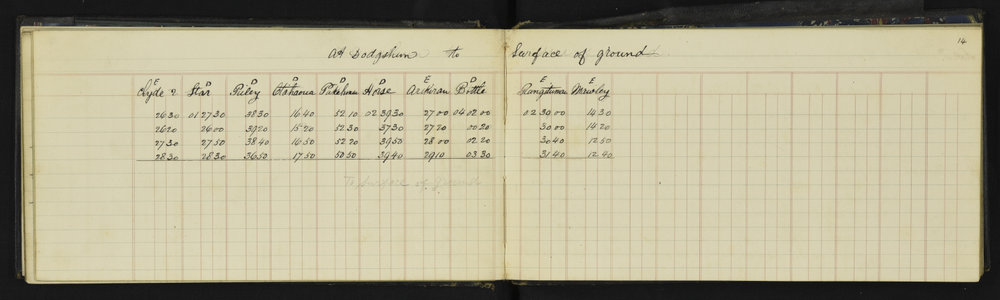 14
At Dodgshun to Surface of ground
E D D D D D E D E E
Clyde 2 Star Puley Otahaoua Pukehiau Horse Arikirau Bottle Mawley
26.30 01 27.30 38.30 16.40 52.10 02 39.30 27.00 04 02.00 02 30.00 14.30
26.20 26.00 39.20 15.20 52.30 37.30 27.20 00.20 30.00 14.20
27.30 27.50 38.40 16.50 52.20 39.50 28.00 02.20 30.40 12.50
28.30 28.30 36.50 17.50 50.50 39.40 29.10 03.30 31.40 12.40
To Surface of ground